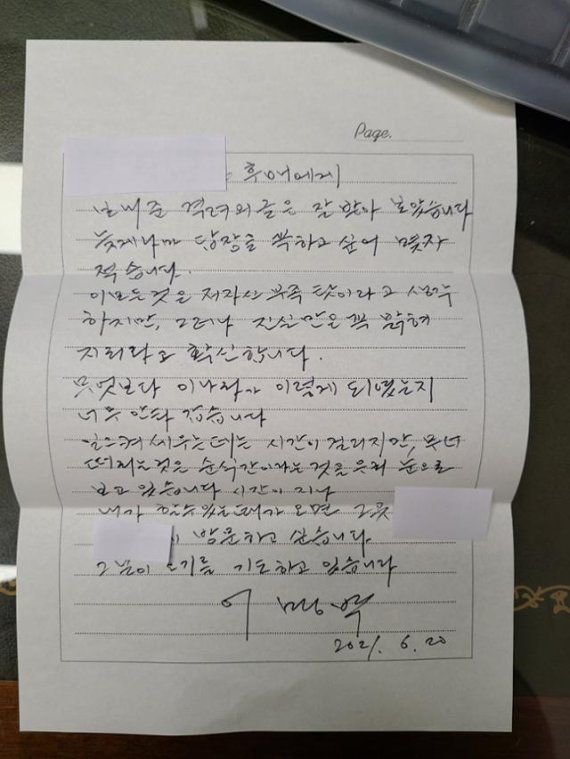 Page.
후배에게
보내준 격려의 글은 잘 받아 보았습니다
늦게나마 답장을 꼭 하고 싶어 몇자
적습니다.
이 모든것은 저 자신 부족 탓이라고 생각
하지만, 그러나 진실만은 꼭 밝혀
지리라고 확신합니다.
무엇보다 이나라가 이렇게 되었는지
너무 안타 깝습니다
일으켜 세우는데는 시간이 걸리지만, 무너
뜨리는것은 순식간이라는 것은 우리 눈으로
보고 있습니다 시간이 지나
내가 할수있는때가 오면 그곳
방문하고 싶습니다
그날이 오기를 기도하고 있습니다
이 명 박
2021. 6. 20